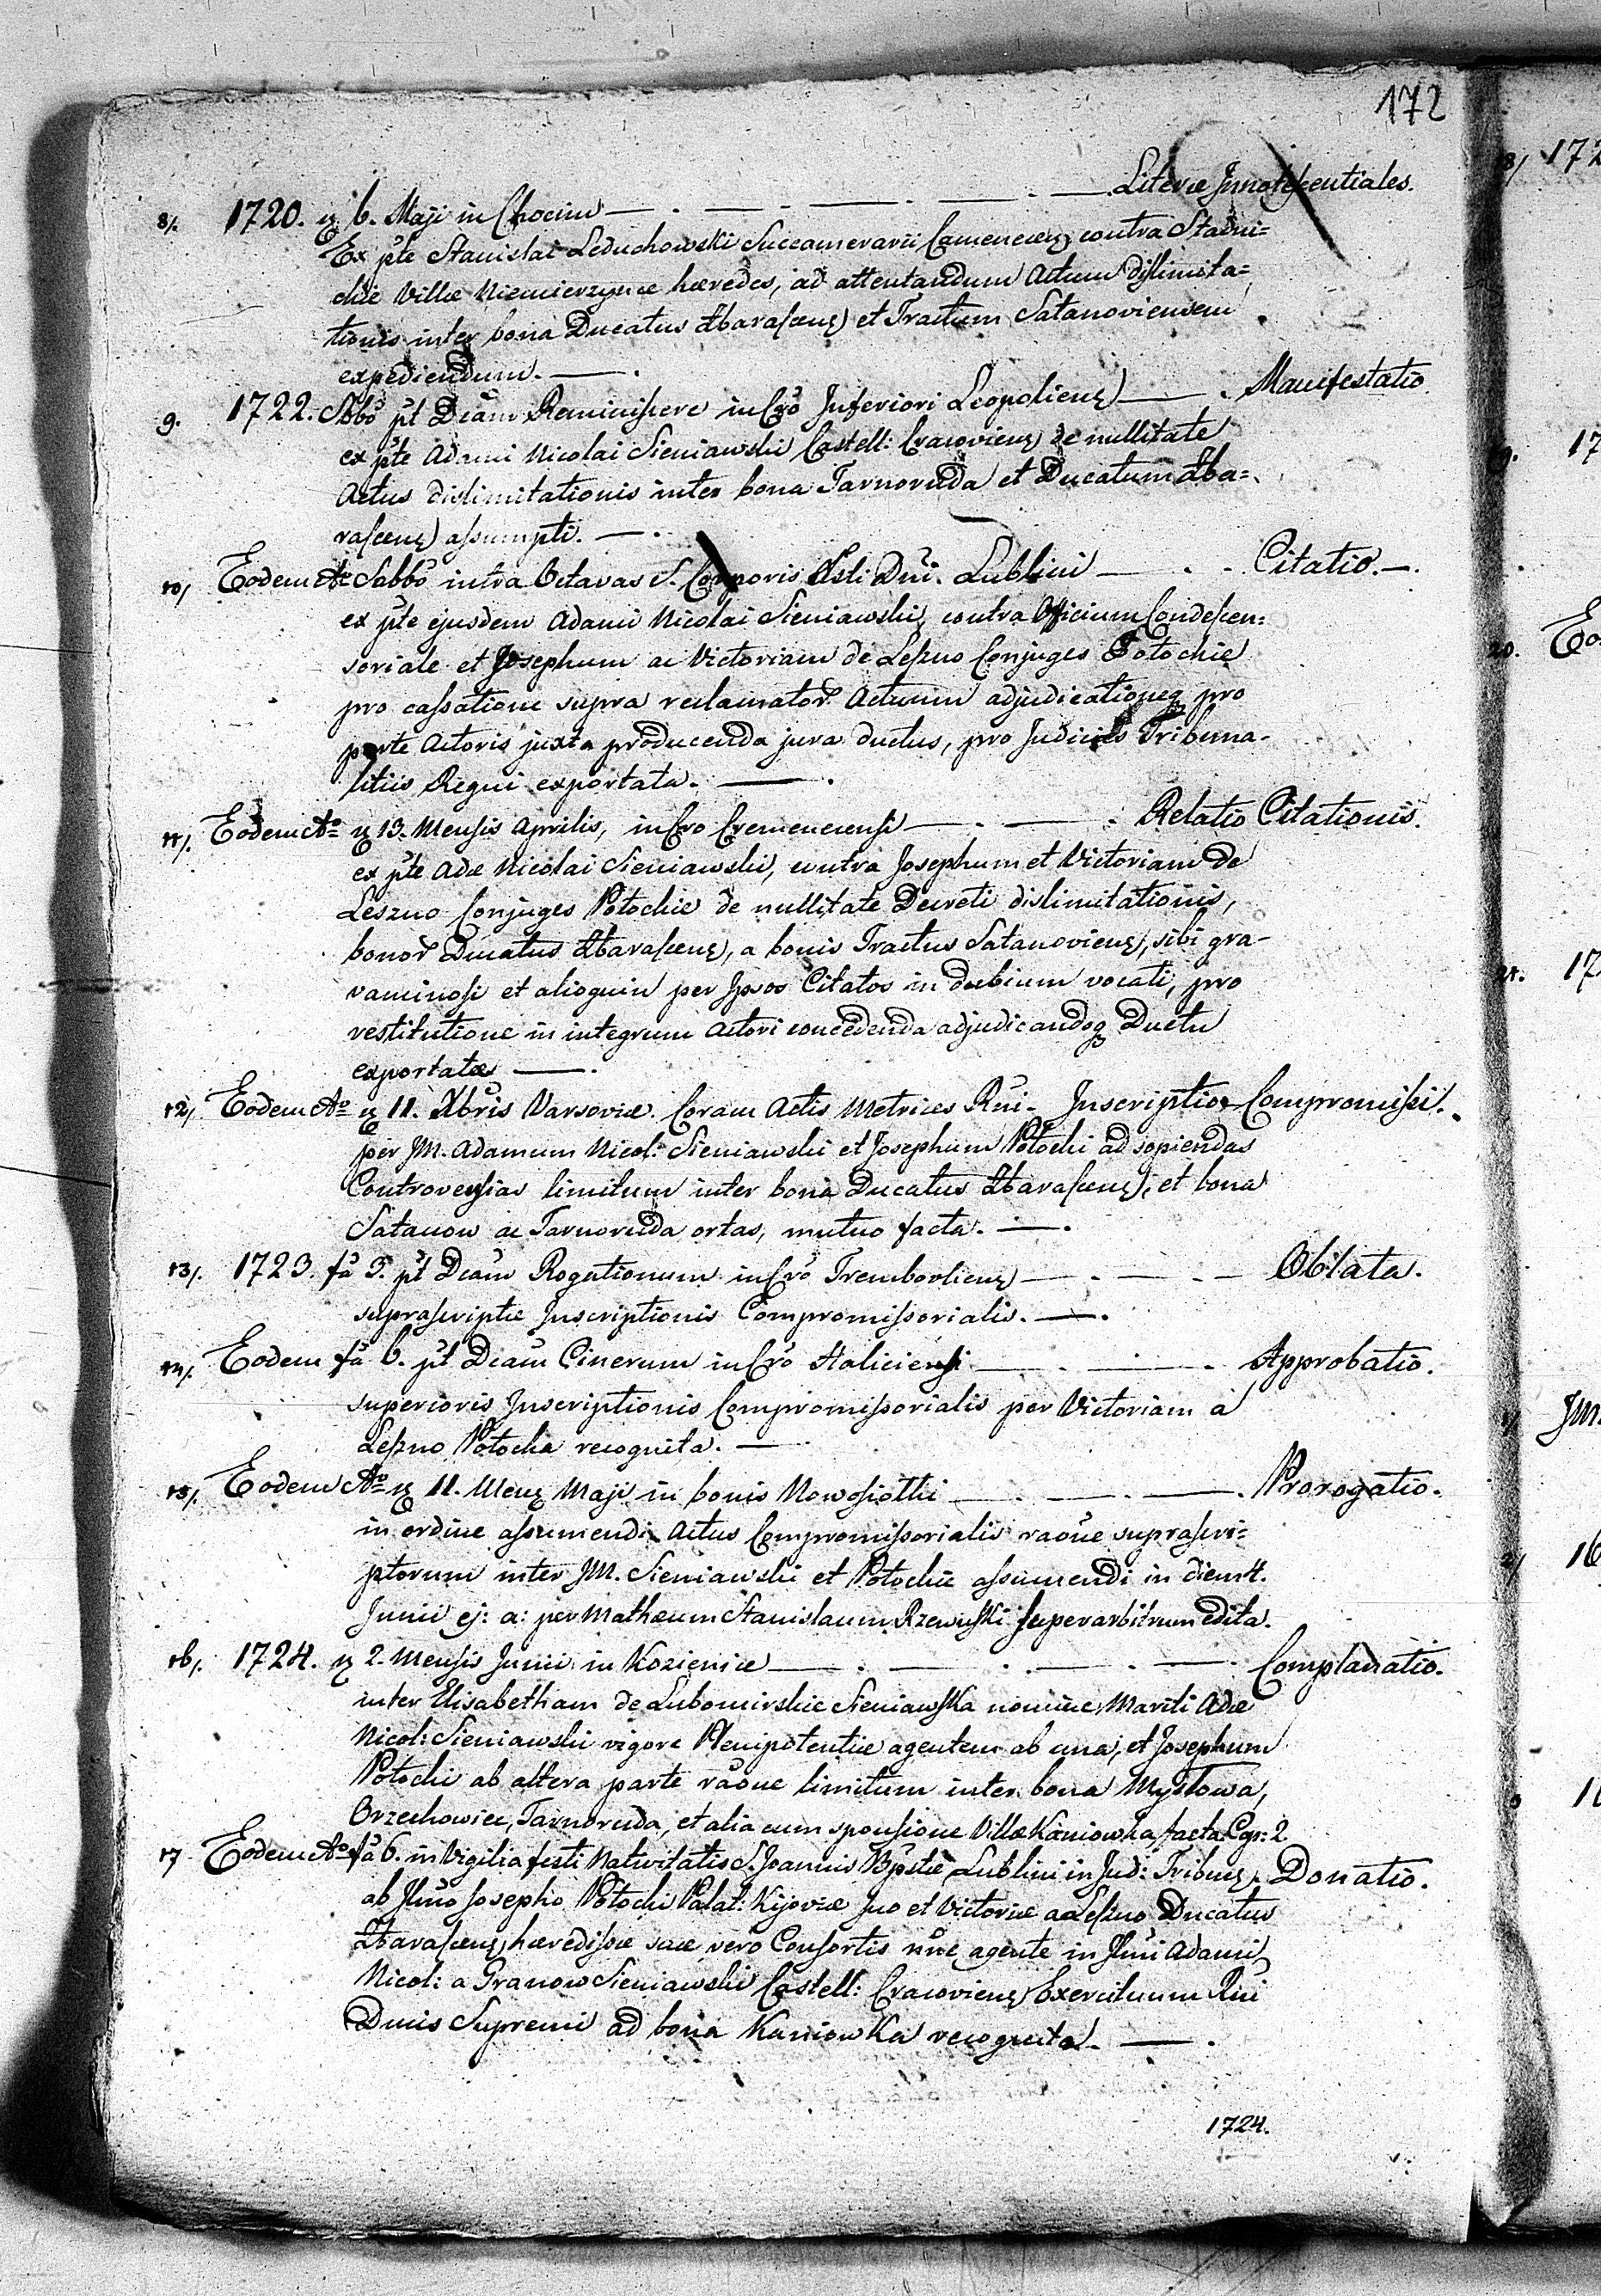 172
8/. 1720. 6. Maji in Chocim — . — . — . — . — Literæ Innotescentiales.
Ex pte Stanislai Leduchowski Succamerarii Camenecen contra Stadni=
ckie Villæ Niemierzynce hæredes, ad attentandum Actum dislimita=
tionis inter bona Ducatus Zbarascens et Tractum Satanoviensem
expediendum. — .
9. 1722. Sbbo pt Dcam Reminiscere in Cro Inferiori Leopoliens — . Manifestatio
ex pte Adami Nicolai Sieniawski Castell: Cracoviens de nullitate
Actus dislimitationis inter bona Tarnoruda et Ducatum Zba=
rascens assumpti. — .
10/ Eodem Ao Sabbo intra Octavas S. Corporis Xsti Dni. Lublini — . - Citatio. — .
ex pte ejusdem Adami Nicolai Sieniawski, contra Officium Condescen=
soriale et Josephum ac Victoriam de Leszno Conjuges Potockie
pro cassatione supra reclamator Actuum adjudicationeq pro
parte Actoris juxta producenda jura ductus, pro Judiciis Tribuna-
litiis Regni exportata. — .
11/. Eodem Ao 13. Mensis Aprilis, in Cro Cremenecensi — . — . Relatio Citationis.
ex pte Adæ Nicolai Sieniawski, contra Josephum et Victoriam de
Leszno Conjuges Potockie de nullitate Decreti dislimitationis,
bonor Ducatus Zbarascens, a bonis Tractus Satanoviens, sibi gra-
vaminosi et alioquin per Ipsos Citatos in dubium vocati, pro
restitutione in integrum Actori concedenda adjudicandoq Ductu
exportatæ — .
12/. Eodem Ao 11. Xbris Varsoviæ. Coram Actis Metrices Rni. Inscriptio Compromissi.
per JM. Adamum Nicol: Sieniawski et Josephum Potocki ad sopiendas
Controversias limitum inter bona Ducatus Zbarascens, et bona
Satanow ac Tarnoruda ortas, mutuo facta. — .
13/. 1723. fa 5. pt Dcam Rogationum in Cro Trembovliens — . — . — Oblata.
suprascriptæ Inscriptionis Compromissorialis. — .
14/. Eodem fa 6. pt Dcam Cinerum in Cro Haliciensi — . — . Approbatio.
superioris Inscriptionis Compromissorialis per Victoriam a
Leszno Potocka recognita. —
15/. Eodem Ao 11. Mens Maji in bonis Nowosiołki — . — . — . Prorogatio.
in ordine assumendi Actus Compromissorialis raone suprascri=
ptorum inter JM. Sieniawski et Potockie assumendi in diem 4.
Junii ej: a: per Mathæum Stanislaum Rzewuski Superarbitrum edita.
16/. 1724. 2. Mensis Junii in Kozienice — . — . — . — . Complanatio.
inter Elisabetham de Lubomirskie Sieniawska nomine Mariti Adæ
Nicol: Sieniawski vigore Plenipotentiæ agentem ab una, et Josephum
Potocki ab altera parte raone limitum inter bona Myslowa,
Orzechowiec, Tarnoruda, et alia cum sponsione Villæ Kaniowka facta Cop: 2.
17 Eodem Ao fa 6. in Vigilia festi Nativitatis S. Joannis Bpstæ, Lublini in Jud: Tribuns. Donatio.
ab Illmo Josepho Potocki Palat: Kijoviæ suo et Victoriæ a Leszno Ducatus
Zbarascens hæredissæ suæ vero Consortis nne agente in Illmi Adami
Nicol: a Granow Sieniawski Castell: Cracoviens, Exercituum Rni
Ducis Supremi ad bona Kaniowka recognita. — .
1724.